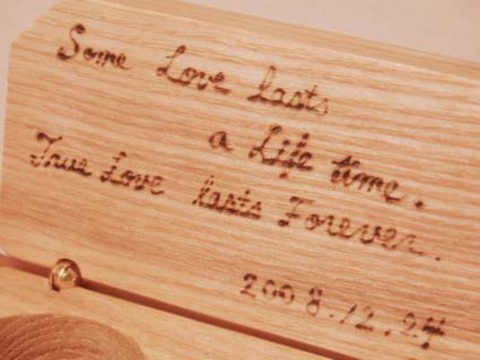 Some Love lasts
a Life time.
True Love lasts Forever.
2008.12.24